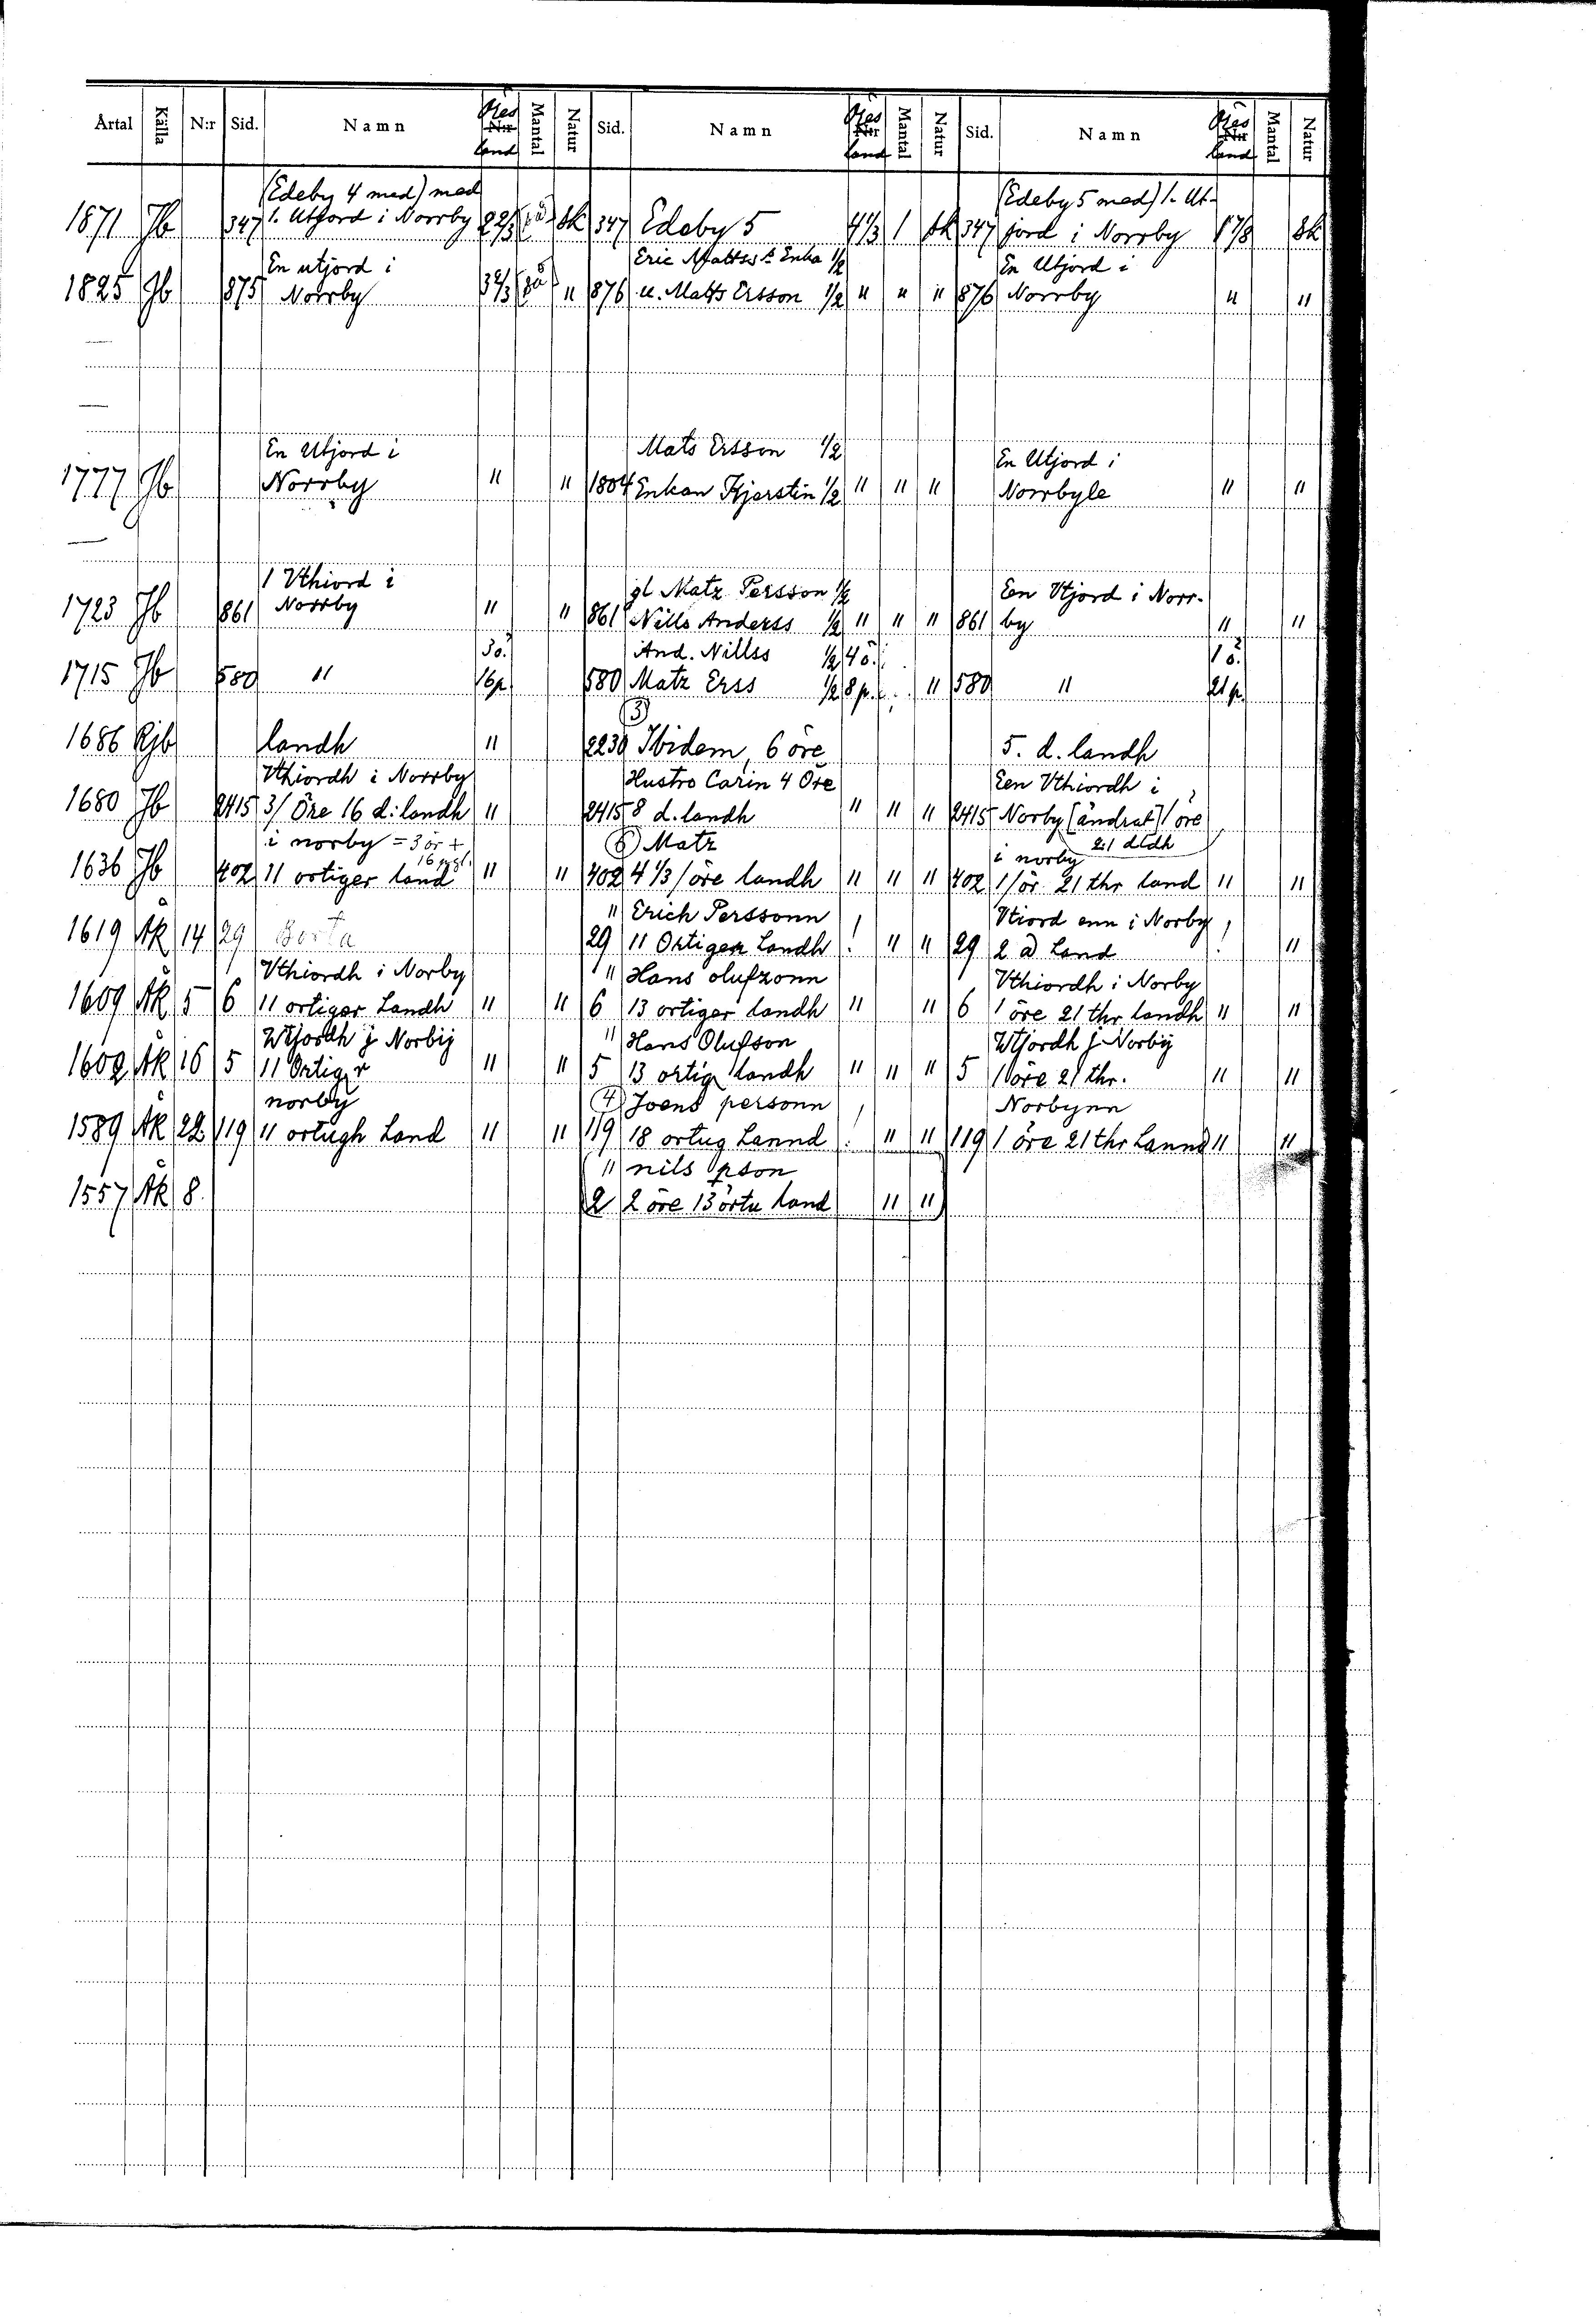 Årtal Källa N:r Sid. Namn Öres land Mantal Natur Sid. Namn Öres land Mantal Natur Sid. Namn Öres land Mantal Natur
(Edeby 4 med) med (Edeby 5 med) 1. Ut-
1871 Jb 347 1. Utjord i Norrby 2 2/3 Sk 347 Edeby 5 4 1/3 1 Sk 347 jord i Norrby 1 7/8 Sk
En utjord i Eric Mattss s: Enka 1/2 En Utjord i
1825 Jb 875 Norrby 3 2/3 " 876 u. Matts Ersson 1/2 " " " 876 Norrby " "
En Utjord i Mats Ersson 1/2 En Utjord i
1777 Jb Norrby " " 1804 Enkan Kjerstin 1/2 " " " Norrbyle " "
1 Vthiord i gl Matz Persson 1/2 Een Vtjord i Norr-
1723 Jb 861 Norrby " " 861 Nills Anderss 1/2 " " " 861 by " "
3ö. And. Nillss 1/2 4ö. 1ö.
1715 Jb 580 " 16p 580 Matz Erss 1/2 8p. " 580 " 21p.
(3)
1686 Rjb landh " 2239 Ibidem, 6 öre 5. d. landh
Vthiordh i Norrby Hustro Carin 4 Öre Een Vthiordh i
1680 Jb 2415 3/ Öre 16 d: landh " 2415 8 d. landh " " " 2415 Norby [ändrat] 1 öre
21 dldh
i norby = 3 ör + 16 pgl. Matz i norby
1636 Jb 402 11 ortiger land " " 402 4 1/3/ öre landh " " " 402 1/ör 21 thr land " "
" Erich Perssonn Vtiord enn i Norby
1619 Åk 14 29 Borta 29 11 Ortiger Landh ! " " 29 2 ð Land ! "
Vthiordh i Norby " Hans olufzonn Vthiordh i Norby
1609 Åk 5 6 11 ortiger Landh " " 6 13 ortiger landh " " 6 1 öre 21 thr landh " "
Wtjordh j Norbij " Hans Olufson Wtjordh j Norbij
1602 Åk 16 5 11 Ortiger " " 5 13 ortig landh " " " 5 1 öre 21 thr. " "
norby (4) Joens personn Norbynn
1589 Åk 22 119 11 ortugh Land " " 119 18 ortug Lannd ! " " 119 1 öre 21 thr Lannd " "
" nils pson
1557 Åk 8. 2 2 öre 13 örtu land " "